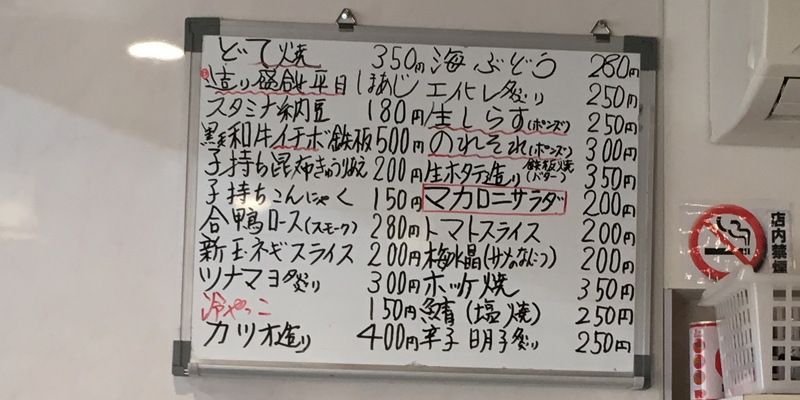 どて焼 350円
造り盛合せ 平目 しまあじ
スタミナ納豆 180円
黒毛和牛イチボ鉄板 500円
子持ち昆布きゅうり和え 200円
子持ちこんにゃく 150円
合鴨ロース(スモーク) 280円
新玉ネギスライス 200円
ツナマヨ炙り 300円
冷やっこ 150円
カツオ造り 400円
海ぶどう 280円
エイヒレ炙り 250円
生しらす(ポンズ) 250円
のれそれ(ポンズ) 300円
生ホタテ造り 鉄板焼(バター) 350円
マカロニサラダ 200円
トマトスライス 200円
梅水晶(サメのなんこつ) 200円
ホッケ焼 350円
鯖(塩焼) 250円
辛子明子炙り 250円
店内禁煙